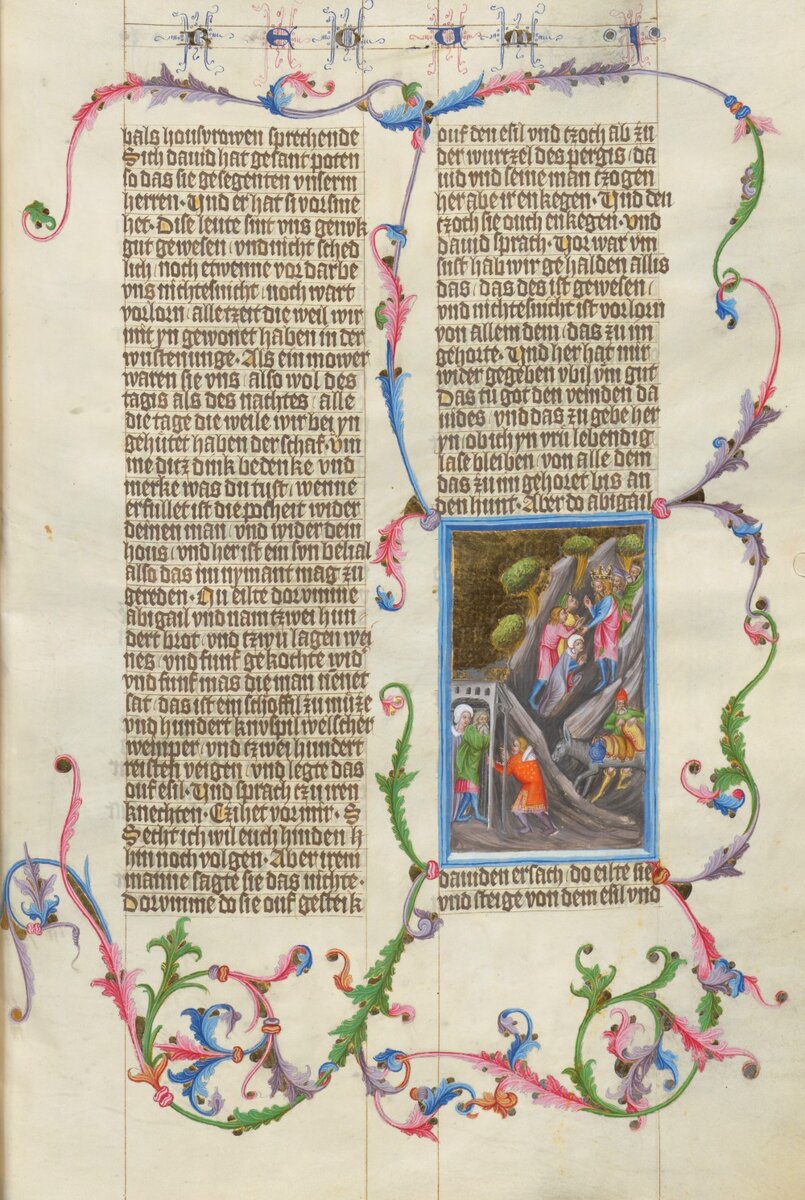 REGUM I
bals housvrowen sprechende
Sich dauid hat gesant poten
so das sie gesegenten vnserm
herren · Vnd er hat si vorsme
het · Dise leute sint vns genuk
gut gewesen / vnd nicht sched
lich / noch etwenne vor darbe
vns nichtesnicht / noch wart
vorlorn / alle tzeit die weil wir
mit yn gewonet haben in der
wustenunge · Als ein mower
waren sie vns / also wol des
tagis als des nachtes / alle
die tage die weile wir bei yn
gehutet haben der schaf · Vm
me ditz dink bedenke vnd
merke was du tust / wenne
erfullet ist die pocheit wider
deinen man / vnd wider dein
hous / vnd her ist ein svn belial
also das im nymant mag zu
gereden · Nu eilte dorvmme
abigail vnd nam tzwei hun
dert brot / vnd tzwu lagen wei
nes / vnd funf gekochte wid
vnd funf mas die man nenet
sat / das ist ein schoffil zu muze
vnd hundert knvspil welscher
weinper / vnd tzwei hundert
reisten veigen / vnd legte das
ouf esil · Vnd sprach tzu iren
knechten · Czihet vor mir · S
Secht ich wil euch hinden h
hin noch volgen · Aber irem
manne sagte sie das nichte ·
Dorvmme do sie ouf gesteik
ouf den esil vnd tzoch ab zu
der wurtzel des pergis / da
uid vnd seine man tzogen
her abe ir enkegen · Vnd den
tzoch sie ouch enkegen · Vnd
dauid sprach · Vor war vm
sust hab wir gehalden allis
das / das des ist gewesen /
vnd nichtesnicht ist vorlorn
von allem dem / das zu im
gehorte · Vnd her hat mir
wider gegeben vbil vm gut
Das tu got den veinden da
uides / vnd das zu gebe her
yn / ob ich yn vru lebendig
lase bleiben / von alle dem
das zu im gehoret bis an
den hunt · Aber do abigail
dauiden ersach / do eilte sie
vnd steige von dem esil vnd